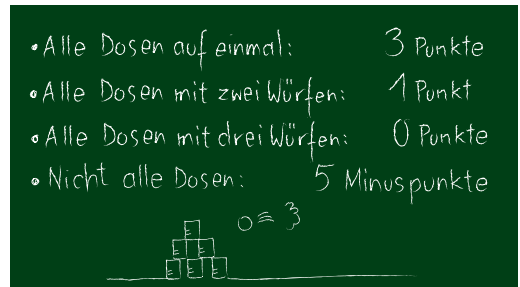 • Alle Dosen auf einmal: 3 Punkte
• Alle Dosen mit zwei Würfen: 1 Punkt
• Alle Dosen mit drei Würfen: 0 Punkte
• Nicht alle Dosen: 5 Minuspunkte